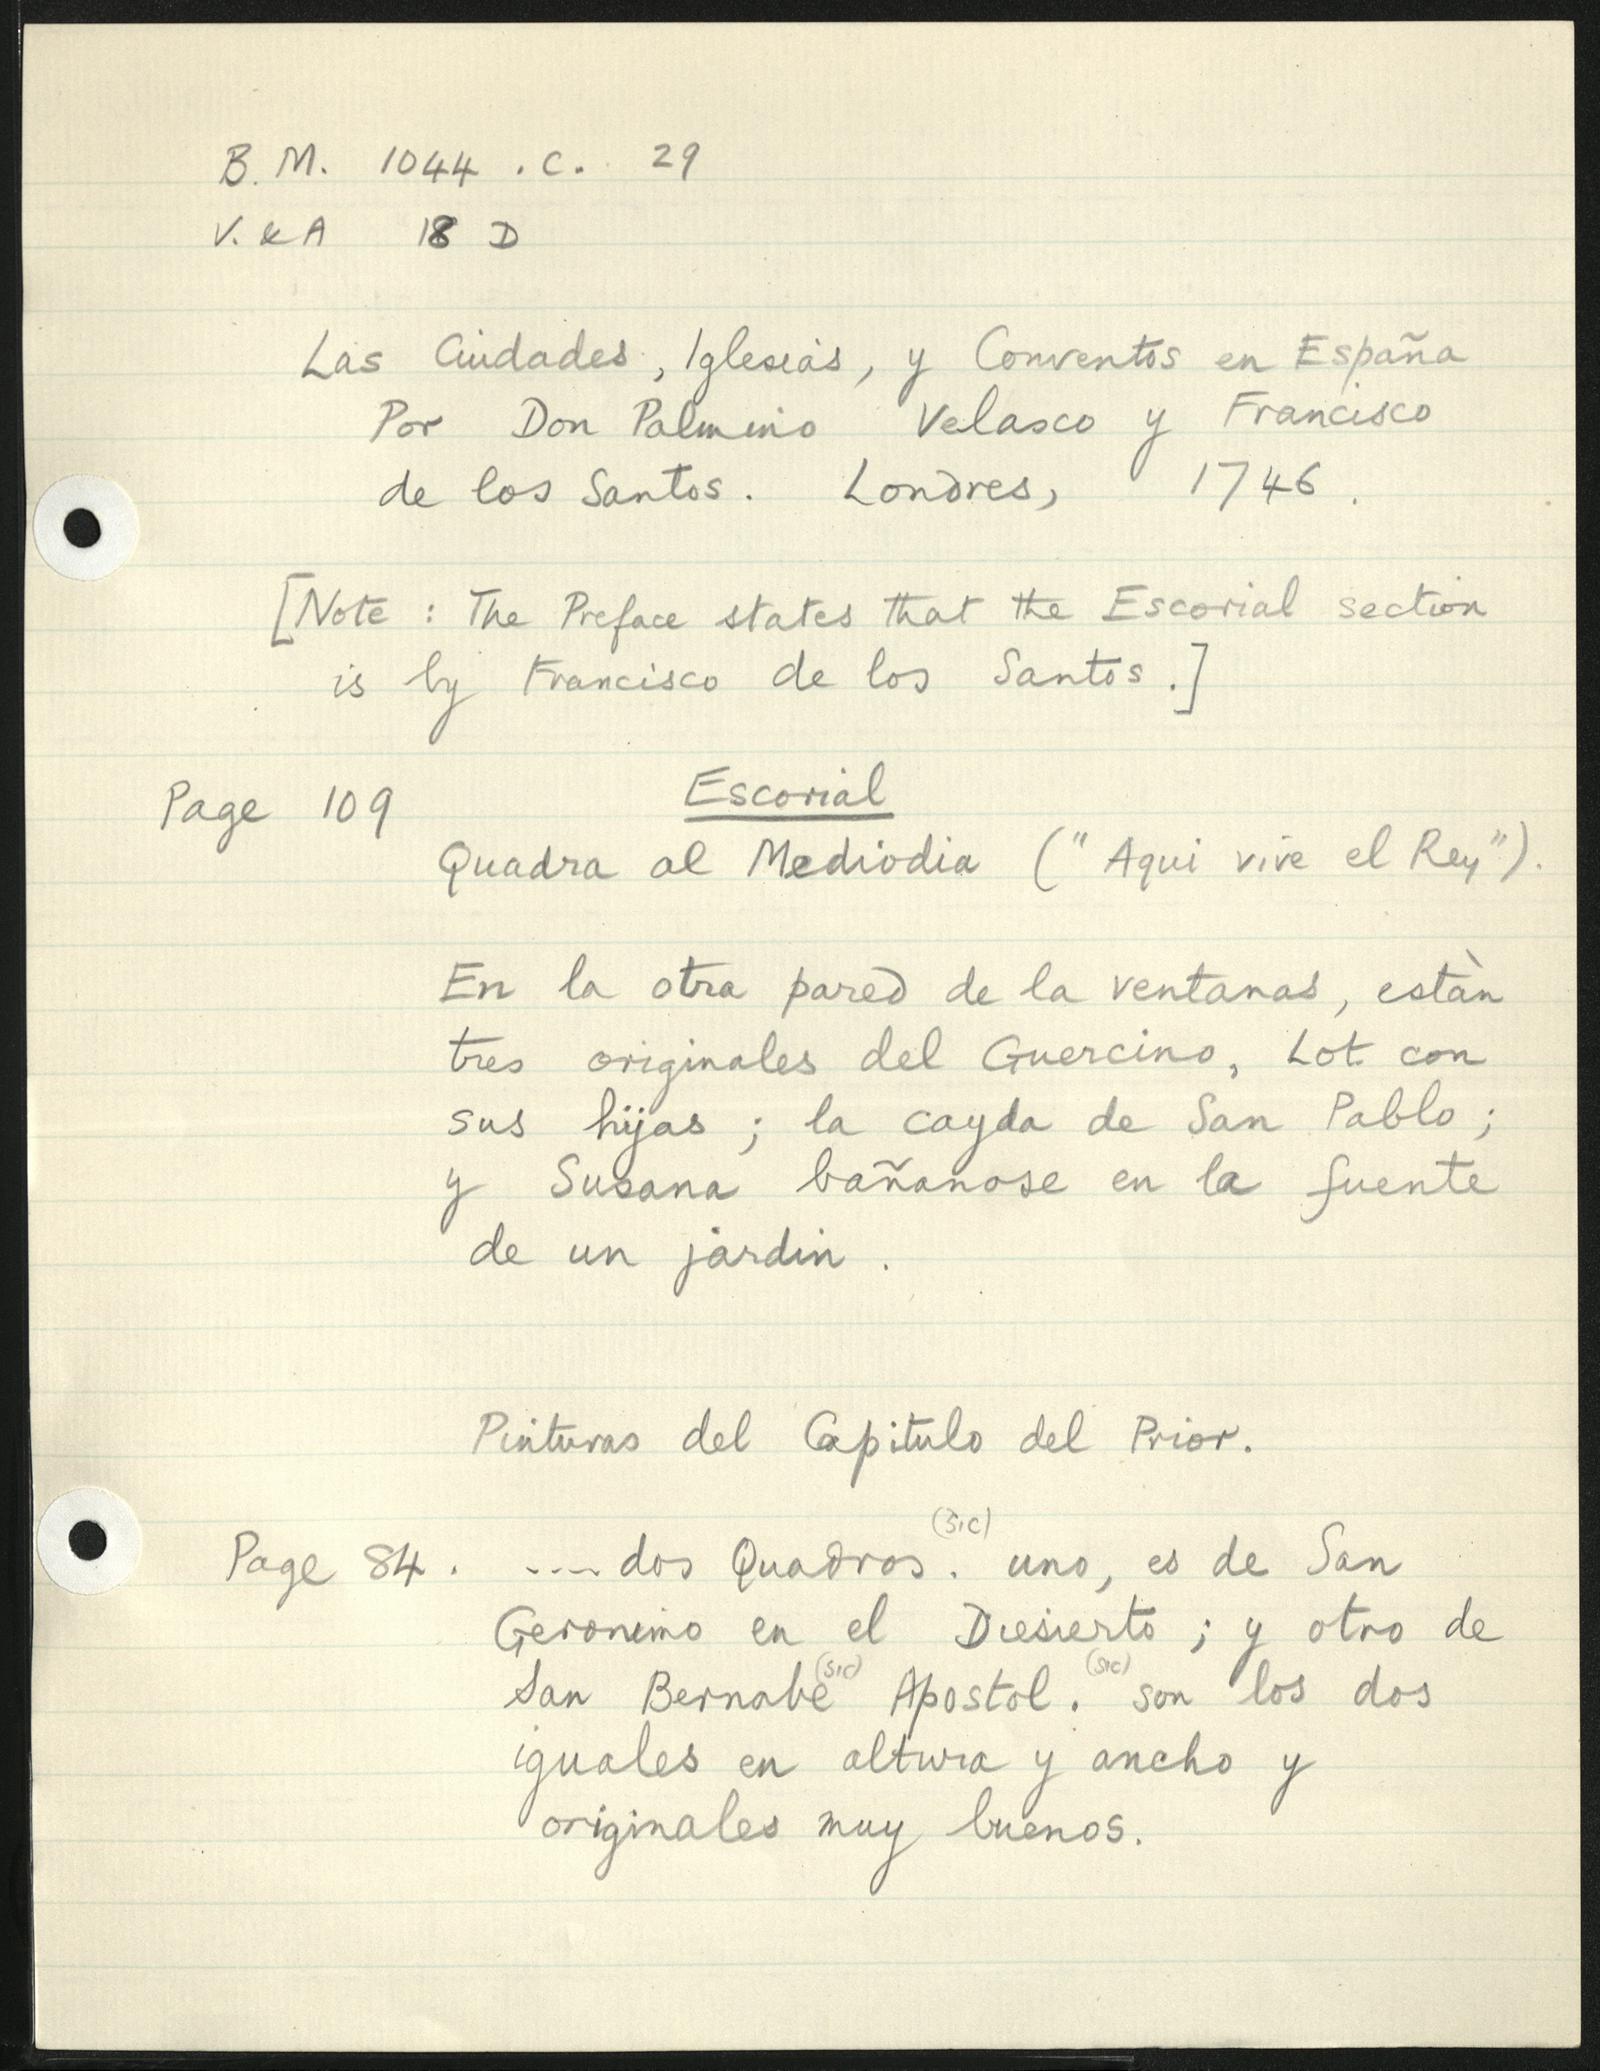 B.M. 1044 .C. 29
V. & A 18 D
Las Ciudades, Iglesias, y Conventos en España
Por Don Palmino Velasco y Francisco
de los Santos. Londres, 1746.
[Note : The Preface states that the Escorial section
is by Francisco de los Santos.]
Escorial
Page 109
Quadra al Mediodia ("Aqui vive el Rey").
En la otra pared de la ventanas, estàn
tres originales del Guercino, Lot con
sus hijas ; la cayda de San Pablo ;
y Susana bañanose en la fuente
de un jardin .
Pinturas del Capitulo del Prior.
(sic)
Page 84. ---- dos Quadros. uno, es de San
Geronimo en el Diesierto ; y otro de
(sic) (sic)
San Bernabe Apostol. son los dos
iguales en altura y ancho y
originales muy buenos.